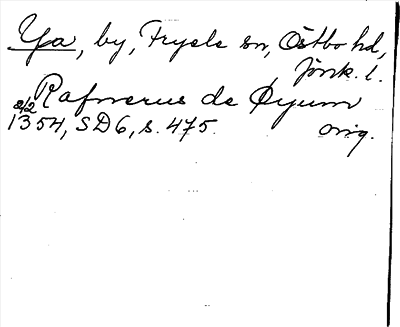 Ya, by, Fryele sn, Östbo hd,
Jönk. l.
Rafnerus de Øyum
2/2 1354, SD6, s. 475. orig.